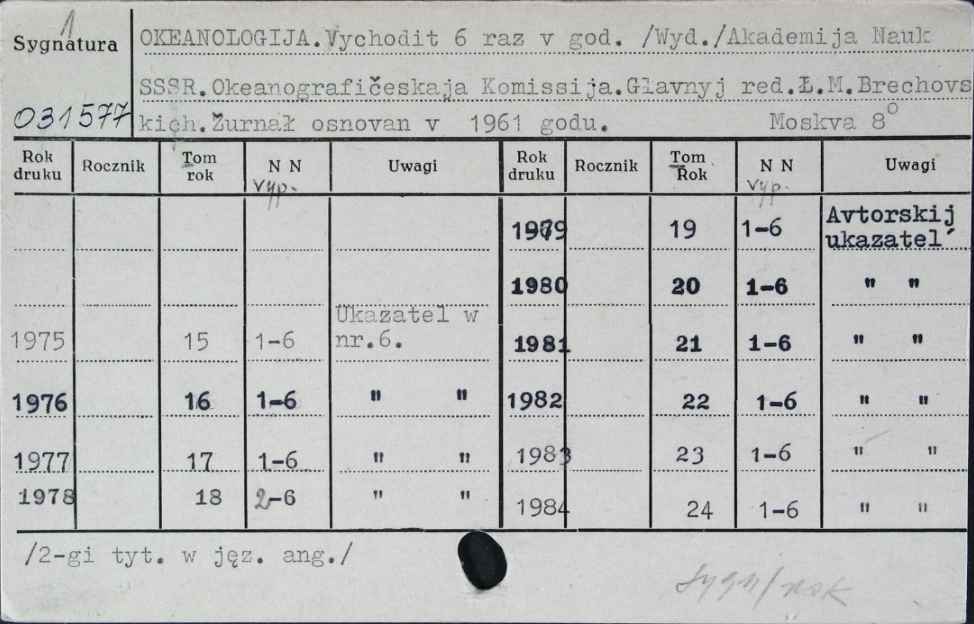 1
Sygnatura
OKEANOLOGIJA.Vychodit 6 raz v god. /Wyd./Akademija Nauk
SSSR.Okeanografičeskaja Komissija.Glavnyj red.Ł.M.Brechovs
031577
kich.Žurnał osnovan v 1961 godu. Moskva 8°
Rok druku Rocznik Tom rok N N vyp. Uwagi Rok druku Rocznik Tom Rok N N vyp. Uwagi
1979 19 1-6 Avtorskij ukazatel´
1980 20 1-6 " "
1975 15 1-6 Ukazatel w nr.6. 1981 21 1-6 " "
1976 16 1-6 " " 1982 22 1-6 " "
1977 17 1-6 " " 1983 23 1-6 " "
1978 18 2-6 " " 1984 24 1-6 " "
/2-gi tyt. w jęz. ang./
sygn/rok